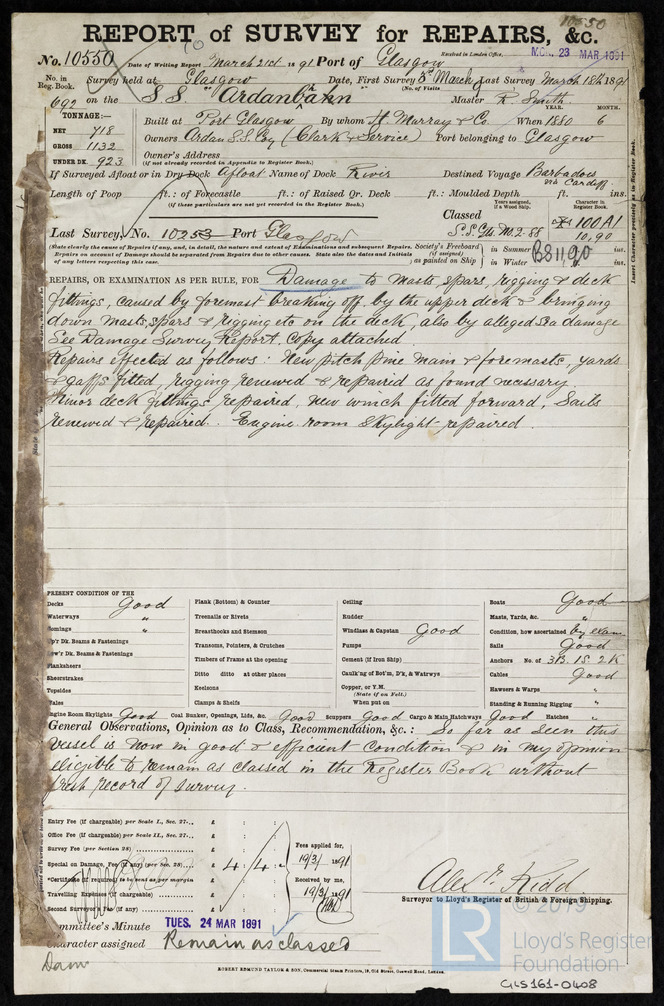 10550
REPORT of SURVEY for REPAIRS, &c.
No. 10550 Date of Writing Report March 21st 1891 Port of Glasgow
Received in London Office, MON. 23 MAR 1891
No. in Reg. Book. Survey held at Glasgow Date, First Survey 5th March Last Survey March 18th 1891
(No. of Visits
692 on the S.S. "Ardanbahn Master R. Smith
TONNAGE:—
NET 718
GROSS 1132
UNDER DK. 923
Built at Port Glasgow By whom H. Murray & Co. When 1880 6
YEAR. MONTH.
Owners Ardan S.S. Coy (Clark & Service) Port belonging to Glasgow
Owner's Address
(if not already recorded in Appendix to Register Book.)
If Surveyed Afloat or in Dry Dock Afloat Name of Dock River Destined Voyage Barbadoes via Cardiff
Length of Poop ft.: of Forecastle ft.: of Raised Qr. Deck ft.: Moulded Depth ft. ins.
(if these particulars are not yet recorded in the Register Book.)
Years assigned, if a Wood Ship.
Character in Register Book.
Last Survey, No. 10253 Port Glasgow
Classed S.S. Gls. No. 2-88 100A1
10,90
(State clearly the cause of Repairs if any, and, in detail, the nature and extent of Examination and subsequent Repairs.
Repairs on account of Damage should be separated from Repairs due to other causes. State also the Dates and Initials
of any letters respecting this case.)
Society's Freeboard (if assigned) as painted on Ship
in Summer ins.
in Winter ins.
BS 11,90
Insert Character precisely as in Register Book.
REPAIRS, OR EXAMINATION AS PER RULE, FOR Damage to masts, spars, rigging & deck
fittings, caused by foremast breaking off, by the upper deck & bringing
down masts, spars & rigging etc on the deck, also by alleged sea damage
See Damage Survey Report. Copy attached
Repairs effected as follows: New pitch pine main & foremasts, yards
& gaffs fitted, rigging renewed & repaired as found necessary.
Minor deck fittings repaired, new winch fitted forward, Sails
renewed & repaired. Engine room skylight repaired.
PRESENT CONDITION OF THE
Decks Good
Waterways "
Comings "
Up'r Dk. Beams & Fastenings
Low'r Dk. Beams & Fastenings
Planksheers
Sheerstrakes
Topsides
Wales
Plank (Bottom) & Counter
Treenails or Rivets
Breasthooks and Stemson
Transoms, Pointers, & Crutches
Timbers of Frame at the opening
Ditto ditto at other places
Keelsons
Clamps & Shelfs
Ceiling
Rudder
Windlass & Capstan Good
Pumps
Cement (if Iron Ship)
Caulk'ng of Bot'm, D'k, & Watrwys
Copper, or Y.M.
(State if on Felt.)
When put on
Boats Good
Masts, Yards, &c. "
Condition, how ascertained by exam
Sails Good
Anchors No. of 3B. 1S. 2K
Cables Good
Hawsers & Warps "
Standing & Running Rigging "
Engine Room Skylights Good Coal Bunker, Openings, Lids, &c. Good Scuppers Good Cargo & Main Hatchways Good Hatches "
General Observations, Opinion as to Class, Recommendation, &c.: So far as seen this
vessel is now in good & efficient condition & in my opinion
eligible to remain as classed in the Register Book without
fresh record of survey.
Entry Fee (if chargeable) per Scale I., Sec. 27... £ : :
Office Fee (if chargeable) per Scale II., Sec. 27... £ : :
Survey Fee (per Section 28) £ : :
Special on Damage, Fee (if any) (per Sec. 28) £ 4 : 4 : -
*Certificate (if required) to be sent as per margin
Travelling Expenses (if chargeable) £ : :
Second Surveyor's Fee (if any) £ : :
Fees applied for,
19/3/1891
Received by me,
19/3/1891
Alexr. Kidd
Surveyor to Lloyd's Register of British & Foreign Shipping.
Committee's Minute TUES. 24 MAR 1891
Character assigned Remain as classed
ROBERT EDMUND TAYLOR & SON, Commercial Steam Printers, 19, Old Street, Goswell Road, London.
© 2019
LR
Lloyd's Register
Foundation
GLS161-0408